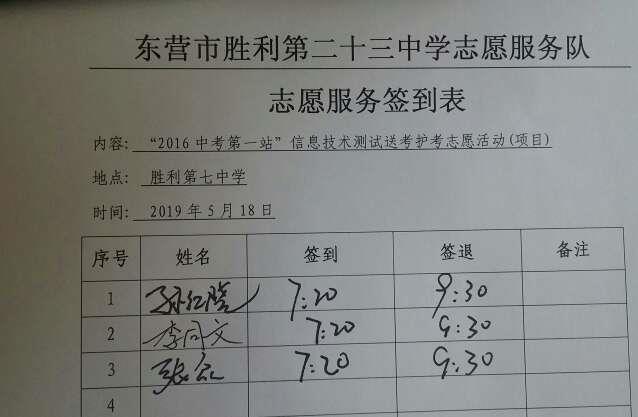 东营市胜利第二十三中学志愿服务队
志愿服务签到表
内容: “2016 中考第一站”信息技术测试送考护考志愿活动(项目)
地点: 胜利第七中学
时间: 2019 年 5 月 18 日
序号 姓名 签到 签退 备注
1 孙红 7:20 9:30
2 李同文 7:20 9:30
3 张 7:20 9:30
4